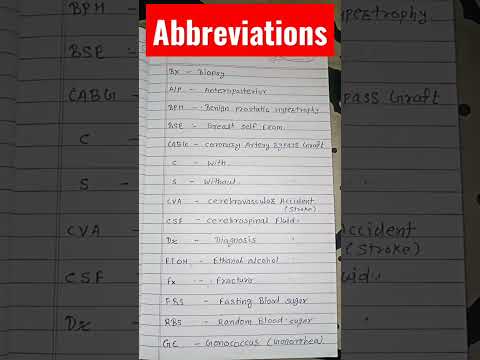 Abbreviations
Bx - Biopsy
A/P - Anteroposterior
BPH - Benign prostatic hypestrophy
BSE - Breast self Exam.
CABG - coronary Artery Bypass Graft
C - With
S - Without
CVA - cerebrovascular Accident
(Stroke)
CSF - cerebrospinal Fluid
Dx - Diagnosis
ETOH - Ethanol alcohol
Fx - Fracture
FBS - Fasting Blood suger
RBS - Random Blood suger
GC - Gonococcus (Gonorrhea)
BPH
BSE
CABG
C
S
CVA
CSF
Dx
pestrophy
pass Graft
Accident
(Stroke)
uid